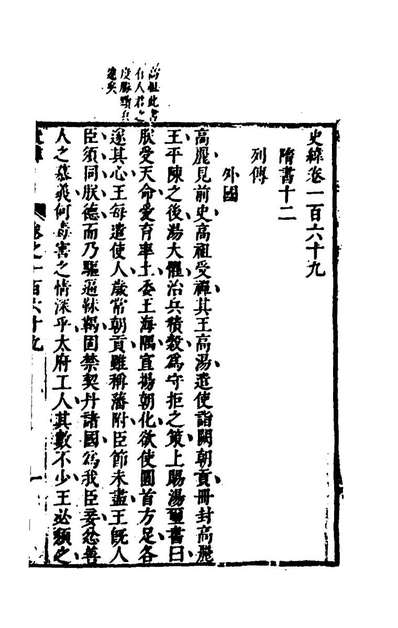 史緯卷一百六十九
隋書十二
列傳
外國
高麗見前史高祖受禪其王高湯遣使詣闕朝貢冊封高麗
王平陳之後湯大懼治兵積穀爲守拒之策上賜湯璽書曰
朕受天命愛育率土委王海隅宣揚朝化欲使圓首方足各
遂其心王每遣使人歲常朝貢雖稱藩附臣節未盡王旣人
臣須同朕德而乃驅逼靺鞨固禁契丹諸國爲我臣妾忿善
人之慕義何毒害之情深乎太府工人其數不少王必須之
高祖此書
有人君之
度勝煬帝
遠矣
卷之一百六十九